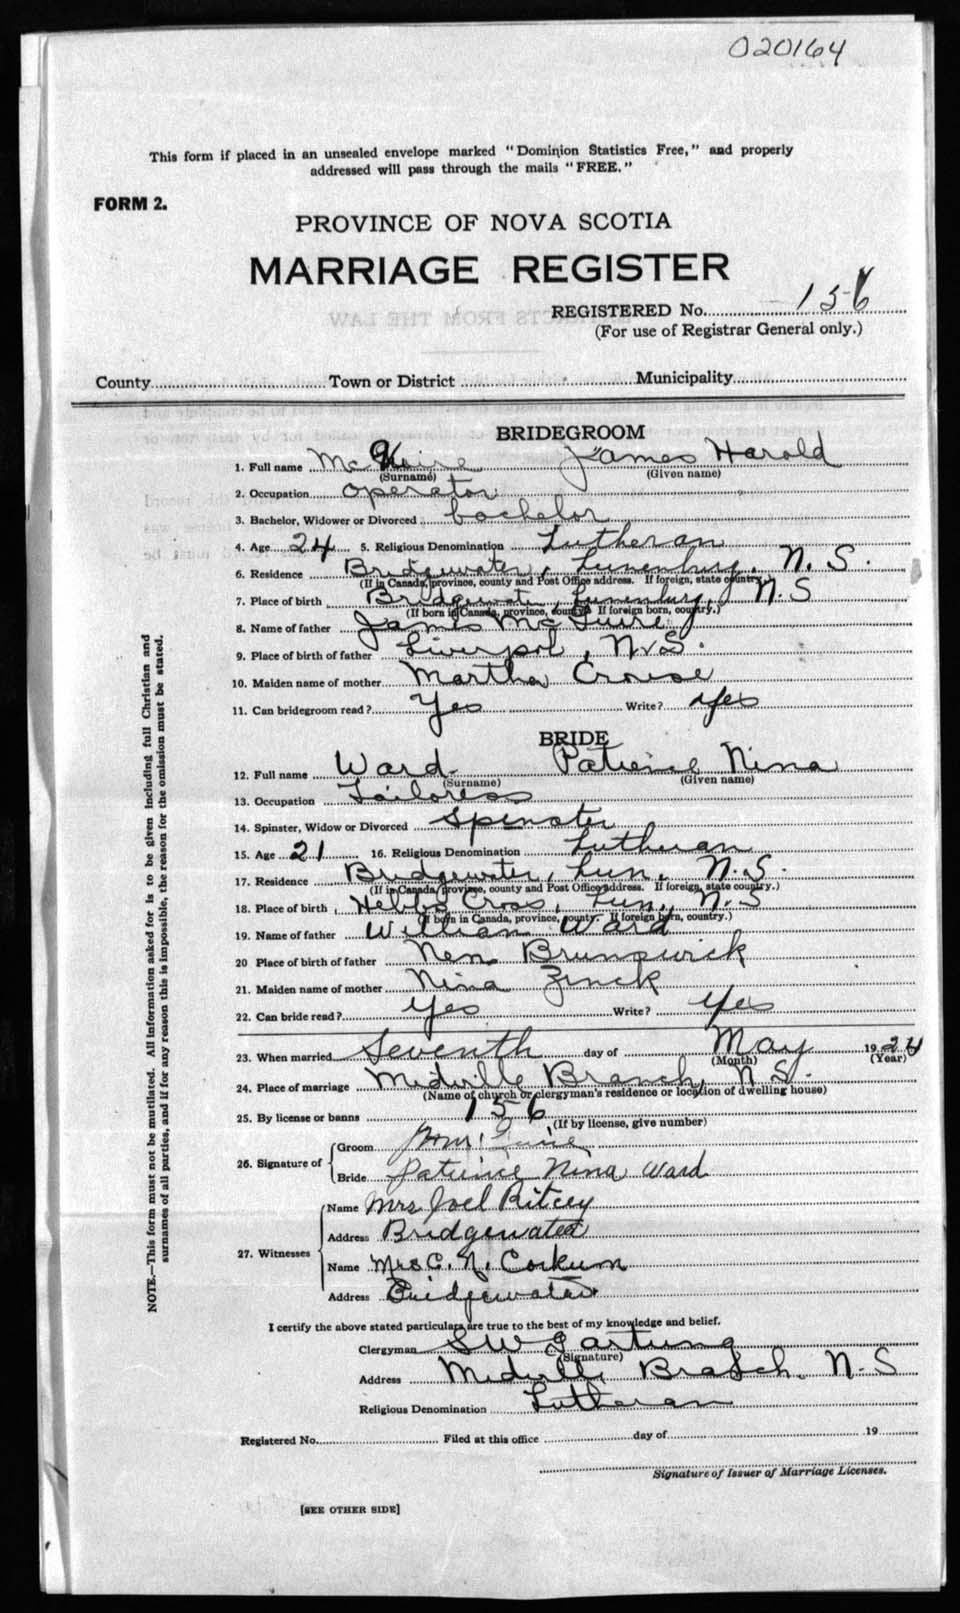 020164
This form if placed in an unsealed envelope marked "Dominion Statistics Free," and properly
addressed will pass through the mails "FREE."
FORM 2.
PROVINCE OF NOVA SCOTIA
MARRIAGE REGISTER
REGISTERED No. 156
(For use of Registrar General only.)
County Town or District Municipality
BRIDEGROOM
1. Full name McGuire James Harold
(Surname) (Given name)
2. Occupation operator
3. Bachelor, Widower or Divorced bachelor
4. Age 24 5. Religious Denomination Lutheran
6. Residence Bridgewater, Lunenburg, N. S.
(If in Canada, province, county and Post Office address. If foreign, state country.)
7. Place of birth Bridgewater, Lunenburg, N.S
(If born in Canada, province, county. If foreign born, country.)
8. Name of father James McGuire
9. Place of birth of father Liverpol, N.S.
10. Maiden name of mother Martha Crouse
11. Can bridegroom read? Yes Write? Yes
BRIDE
12. Full name Ward Patience Nina
(Surname) (Given name)
13. Occupation Tailoress
14. Spinster, Widow or Divorced Spinster
15. Age 21 16. Religious Denomination Lutheran
17. Residence Bridgewater, Lun, N.S.
(If in Canada, province, county and Post Office address. If foreign, state country.)
18. Place of birth Hebbs Cross, Lun, N.S
(If born in Canada, province, county. If foreign born, country.)
19. Name of father William Ward
20 Place of birth of father New Brunswick
21. Maiden name of mother Nina Zinck
22. Can bride read? Yes Write? Yes
23. When married Seventh day of May 1924
(Month) (Year)
24. Place of marriage Midville Branch, N.S.
(Name of church or clergyman's residence or location of dwelling house)
25. By license or banns 156
(If by license, give number)
26. Signature of Groom
Bride Patience Nina Ward
27. Witnesses Name Mrs Joel Ritcey
Address Bridgewater
Name Mrs C. N. Corkum
Address Bridgewater
I certify the above stated particulars are true to the best of my knowledge and belief.
Clergyman S W
(Signature)
Address Midville Branch, N-S
Religious Denomination Lutheran
Registered No. Filed at this office day of 19
Signature of Issuer of Marriage Licenses.
[SEE OTHER SIDE]
NOTE.—This form must not be mutilated. All information asked for is to be given including full Christian and
surnames of all parties, and if for any reason this is impossible, the reason for the omission must be stated.